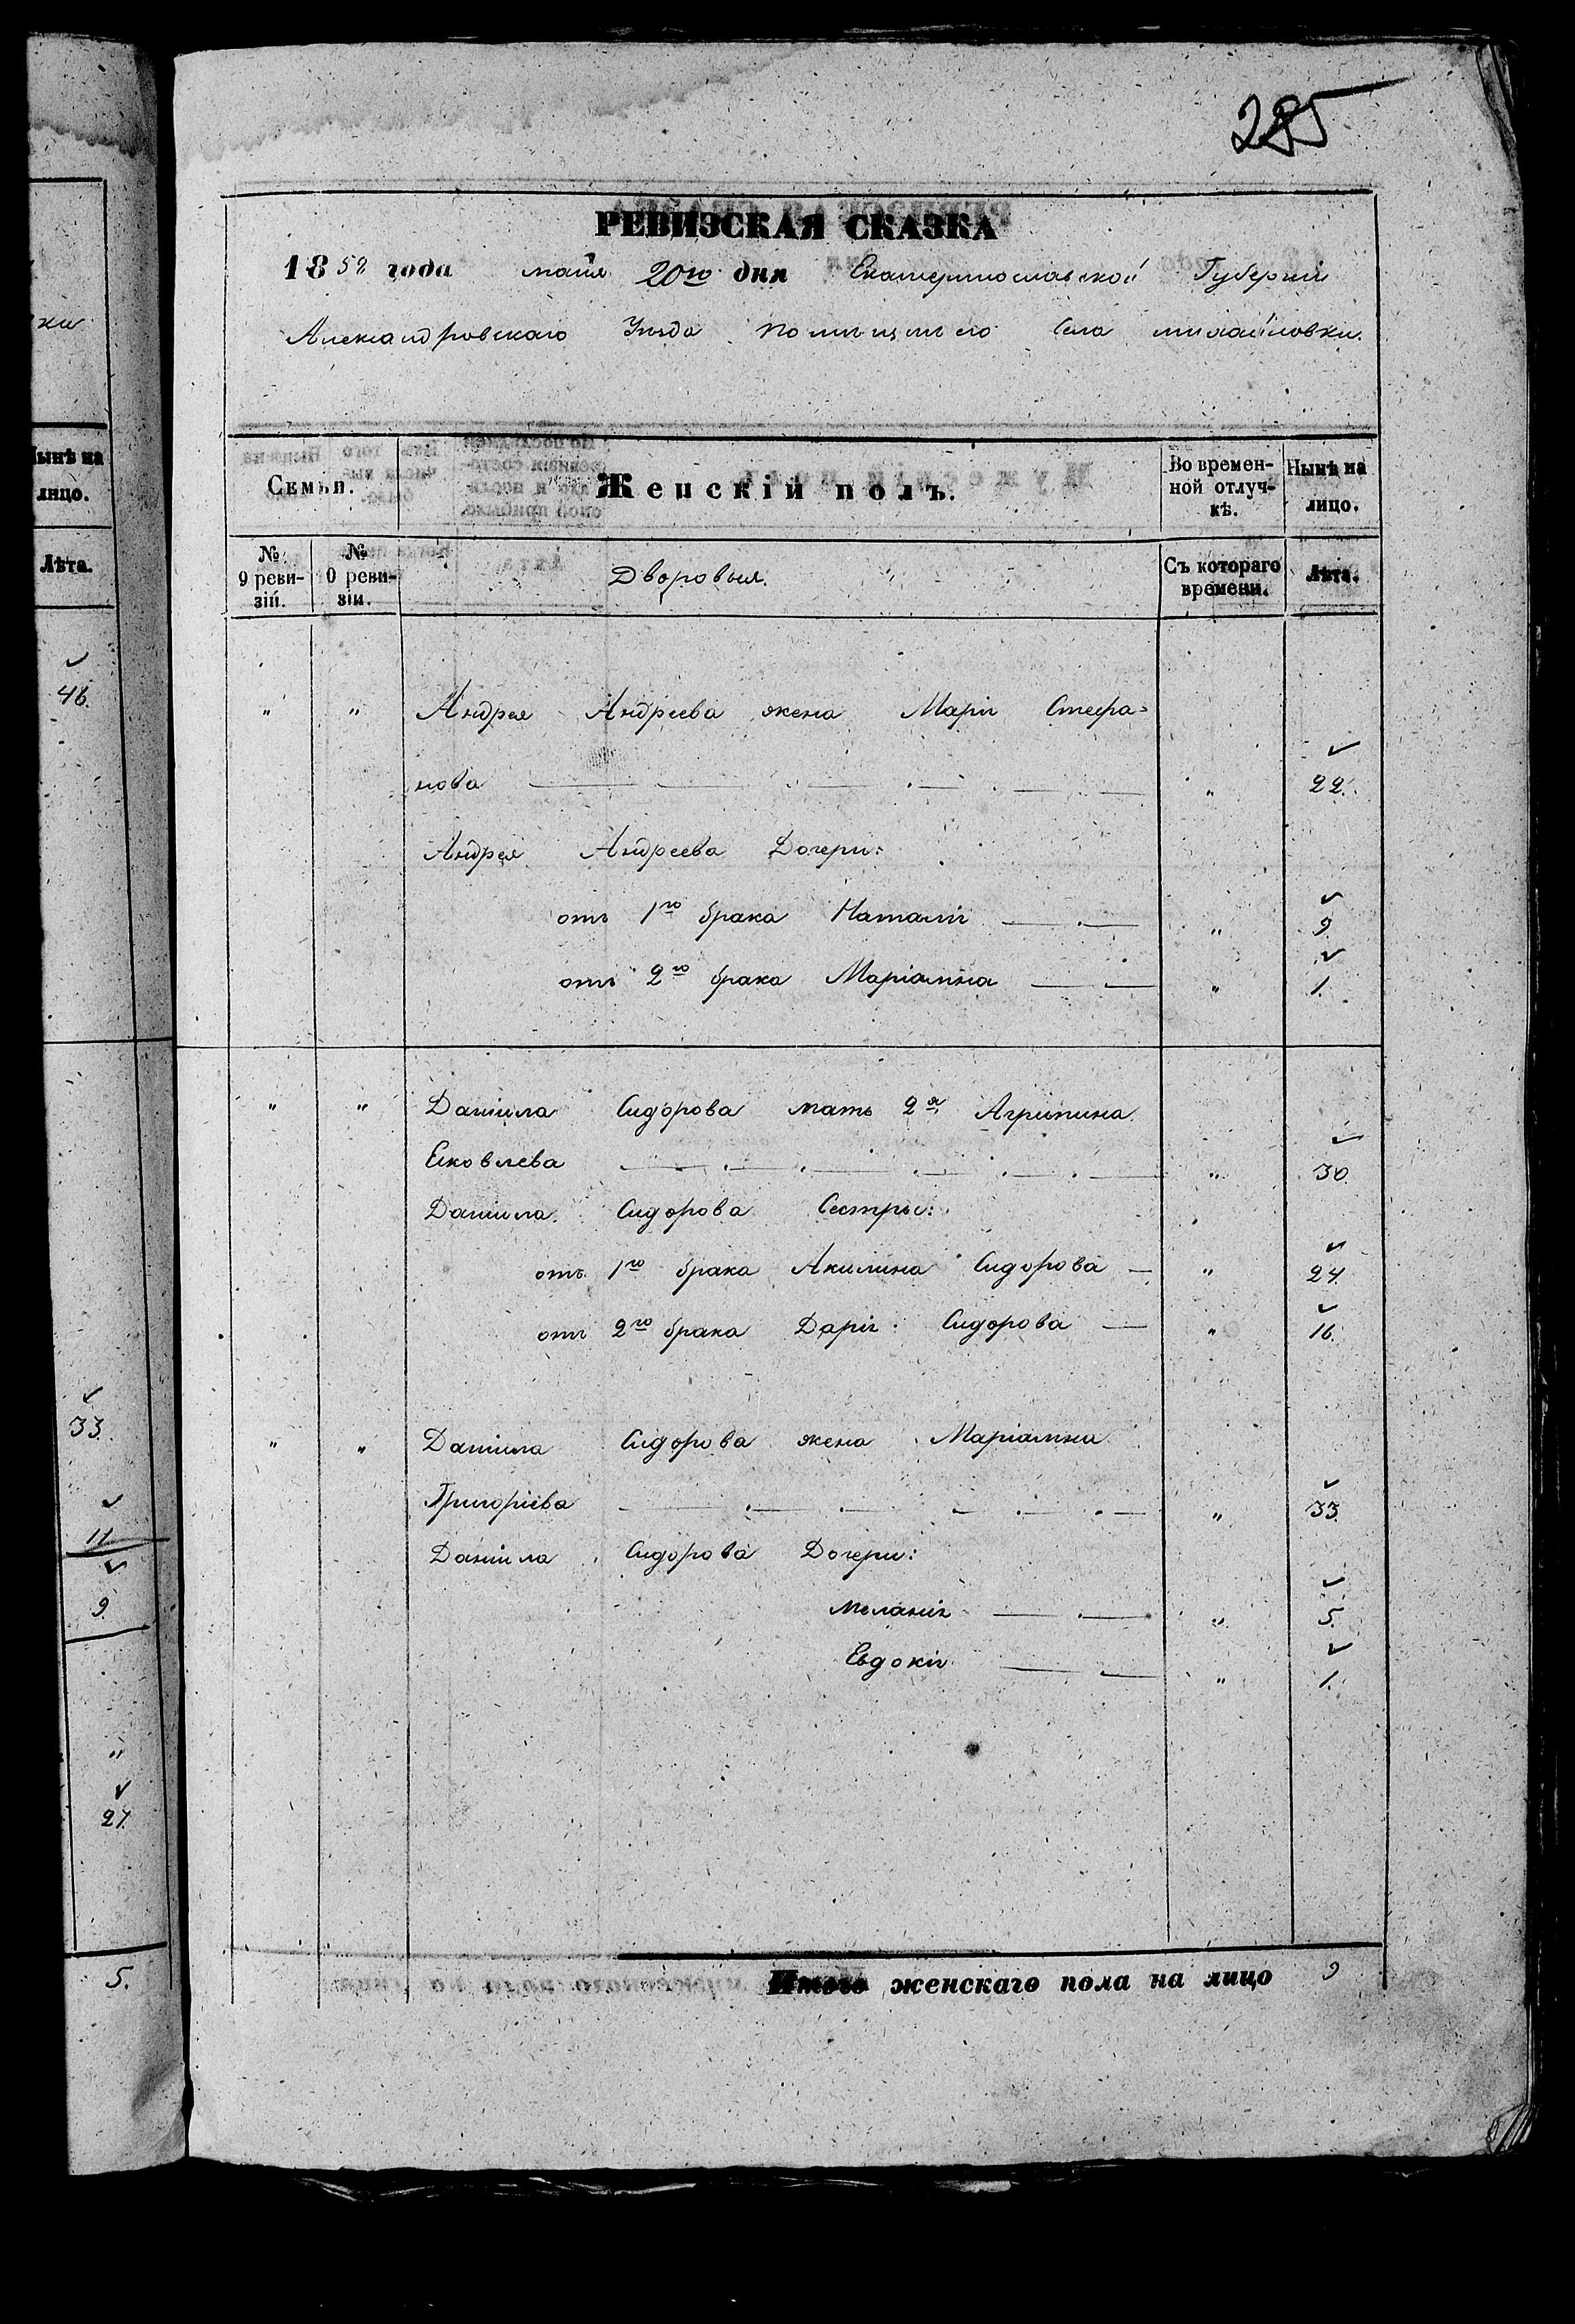 285
РЕВИЗСКАЯ СКАЗКА
1858 года маiя 20го дня Екатеринославской Губернiи
Александровскаго Уѣзда Села михайловки.
Семьи. Женскiй полъ. Во временной отлучкѣ. Нынѣ на лицо.
№ 9 ревизiй. № 0 ревизiи. Дворовыя. Съ котораго времени. Лѣта.
" " Андрея Андреева жена Марiя Стефа=
нова " 22.
Андрея Андреева Дочери:
отъ 1го брака Наталiя " 9
отъ 2го брака Марiамна " 1.
" " Данiила Сидорова мать 2я Агрипина
Еяковлева " 30.
Данiила Сидорова Сестры:
отъ 1го брака Акилина Сидорова " 24.
отъ 2го брака Дарiя Сидорова " 16.
" " Данiила Сидорова жена Марiамна
Григорiева " 33.
Данiила Сидорова Дочери:
Меланiя " 5.
Евдокiя " 1.
Итого женскаго пола на лицо 9
ки
Нынѣ на
лицо.
Лѣта.
46.
33.
11.
9.
"
27.
5.